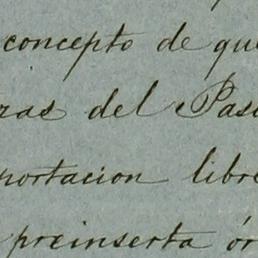 concepto de que
ras del Pas
portacion libre
preinserta ór